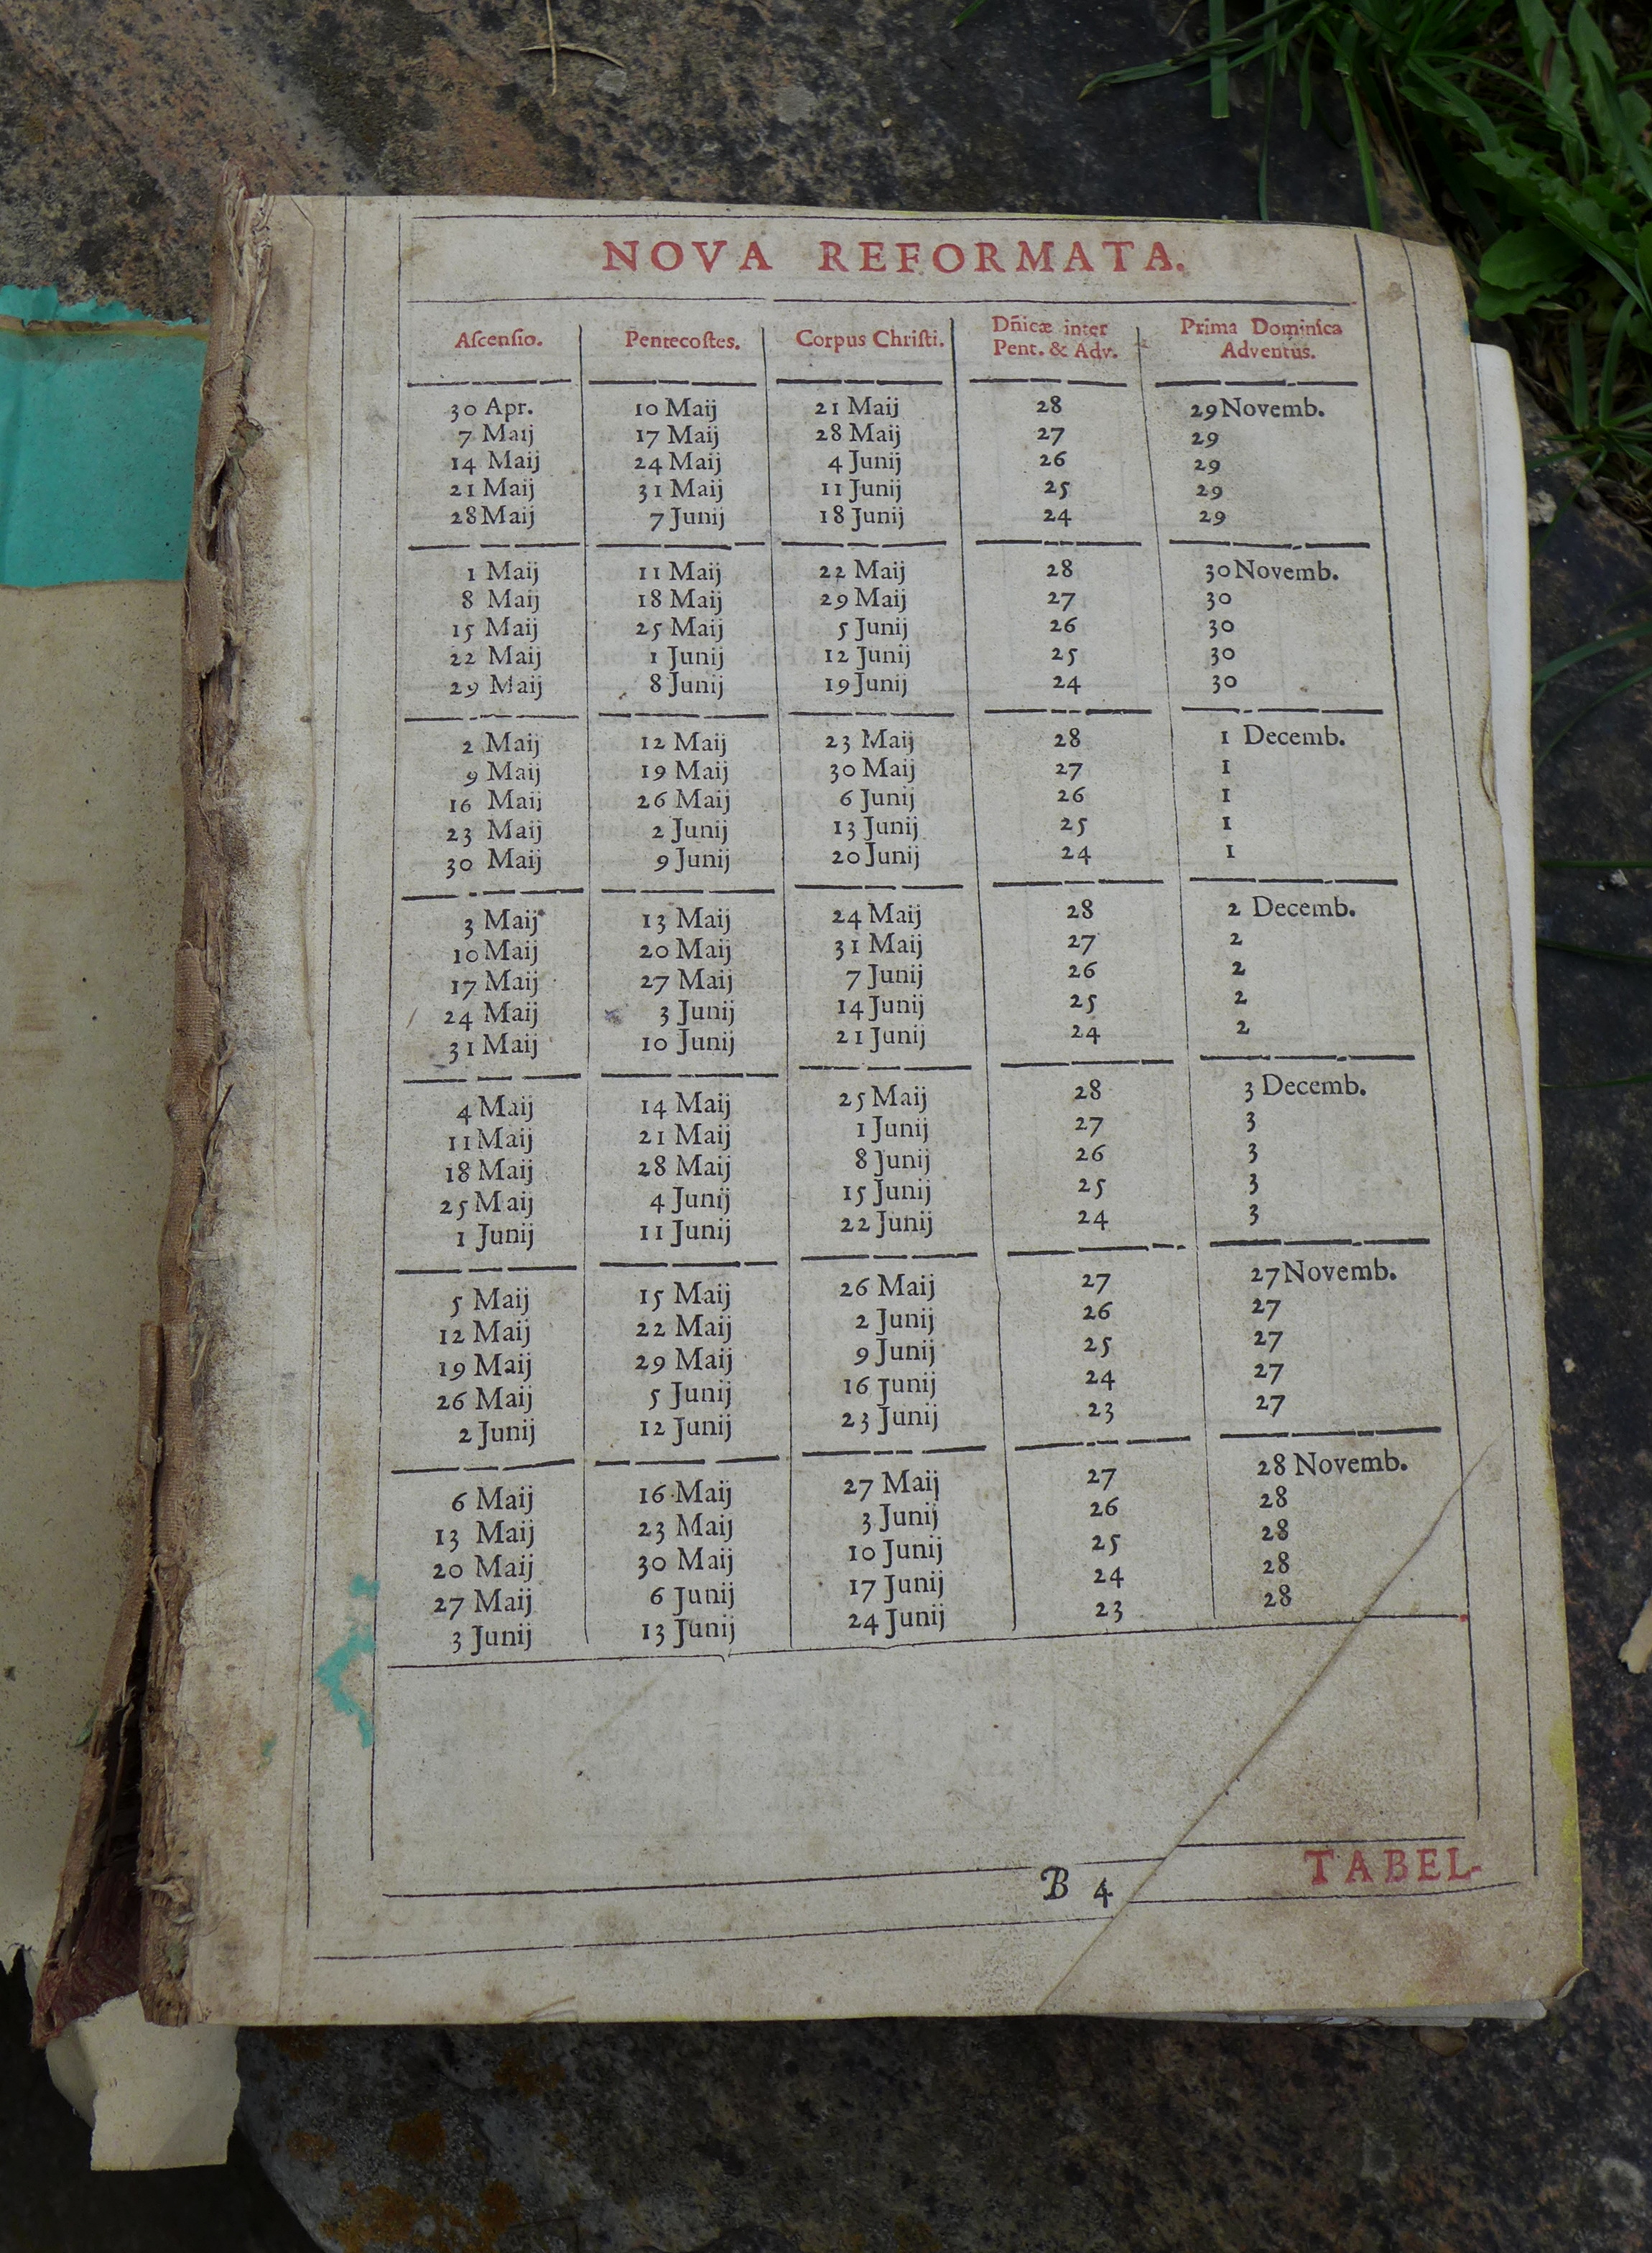 NOVA REFORMATA.
Aſcenſio. Pentecoſtes. Corpus Chriſti. Dñicæ inter Pent. & Adv. Prima Dominica Adventus.
30 Apr. 10 Maij 21 Maij 28 29 Novemb.
7 Maij 17 Maij 28 Maij 27 29
14 Maij 24 Maij 4 Junij 26 29
21 Maij 31 Maij 11 Junij 25 29
28 Maij 7 Junij 18 Junij 24 29
1 Maij 11 Maij 22 Maij 28 30 Novemb.
8 Maij 18 Maij 29 Maij 27 30
15 Maij 25 Maij 5 Junij 26 30
22 Maij 1 Junij 12 Junij 25 30
29 Maij 8 Junij 19 Junij 24 30
2 Maij 12 Maij 23 Maij 28 1 Decemb.
9 Maij 19 Maij 30 Maij 27 1
16 Maij 26 Maij 6 Junij 26 1
23 Maij 2 Junij 13 Junij 25 1
30 Maij 9 Junij 20 Junij 24 1
3 Maij 13 Maij 24 Maij 28 2 Decemb.
10 Maij 20 Maij 31 Maij 27 2
17 Maij 27 Maij 7 Junij 26 2
24 Maij 3 Junij 14 Junij 25 2
31 Maij 10 Junij 21 Junij 24 2
4 Maij 14 Maij 25 Maij 28 3 Decemb.
11 Maij 21 Maij 1 Junij 27 3
18 Maij 28 Maij 8 Junij 26 3
25 Maij 4 Junij 15 Junij 25 3
1 Junij 11 Junij 22 Junij 24 3
5 Maij 15 Maij 26 Maij 27 27 Novemb.
12 Maij 22 Maij 2 Junij 26 27
19 Maij 29 Maij 9 Junij 25 27
26 Maij 5 Junij 16 Junij 24 27
2 Junij 12 Junij 23 Junij 23 27
6 Maij 16 Maij 27 Maij 27 28 Novemb.
13 Maij 23 Maij 3 Junij 26 28
20 Maij 30 Maij 10 Junij 25 28
27 Maij 6 Junij 17 Junij 24 28
3 Junij 13 Junij 24 Junij 23 28
B 4 TABEL-